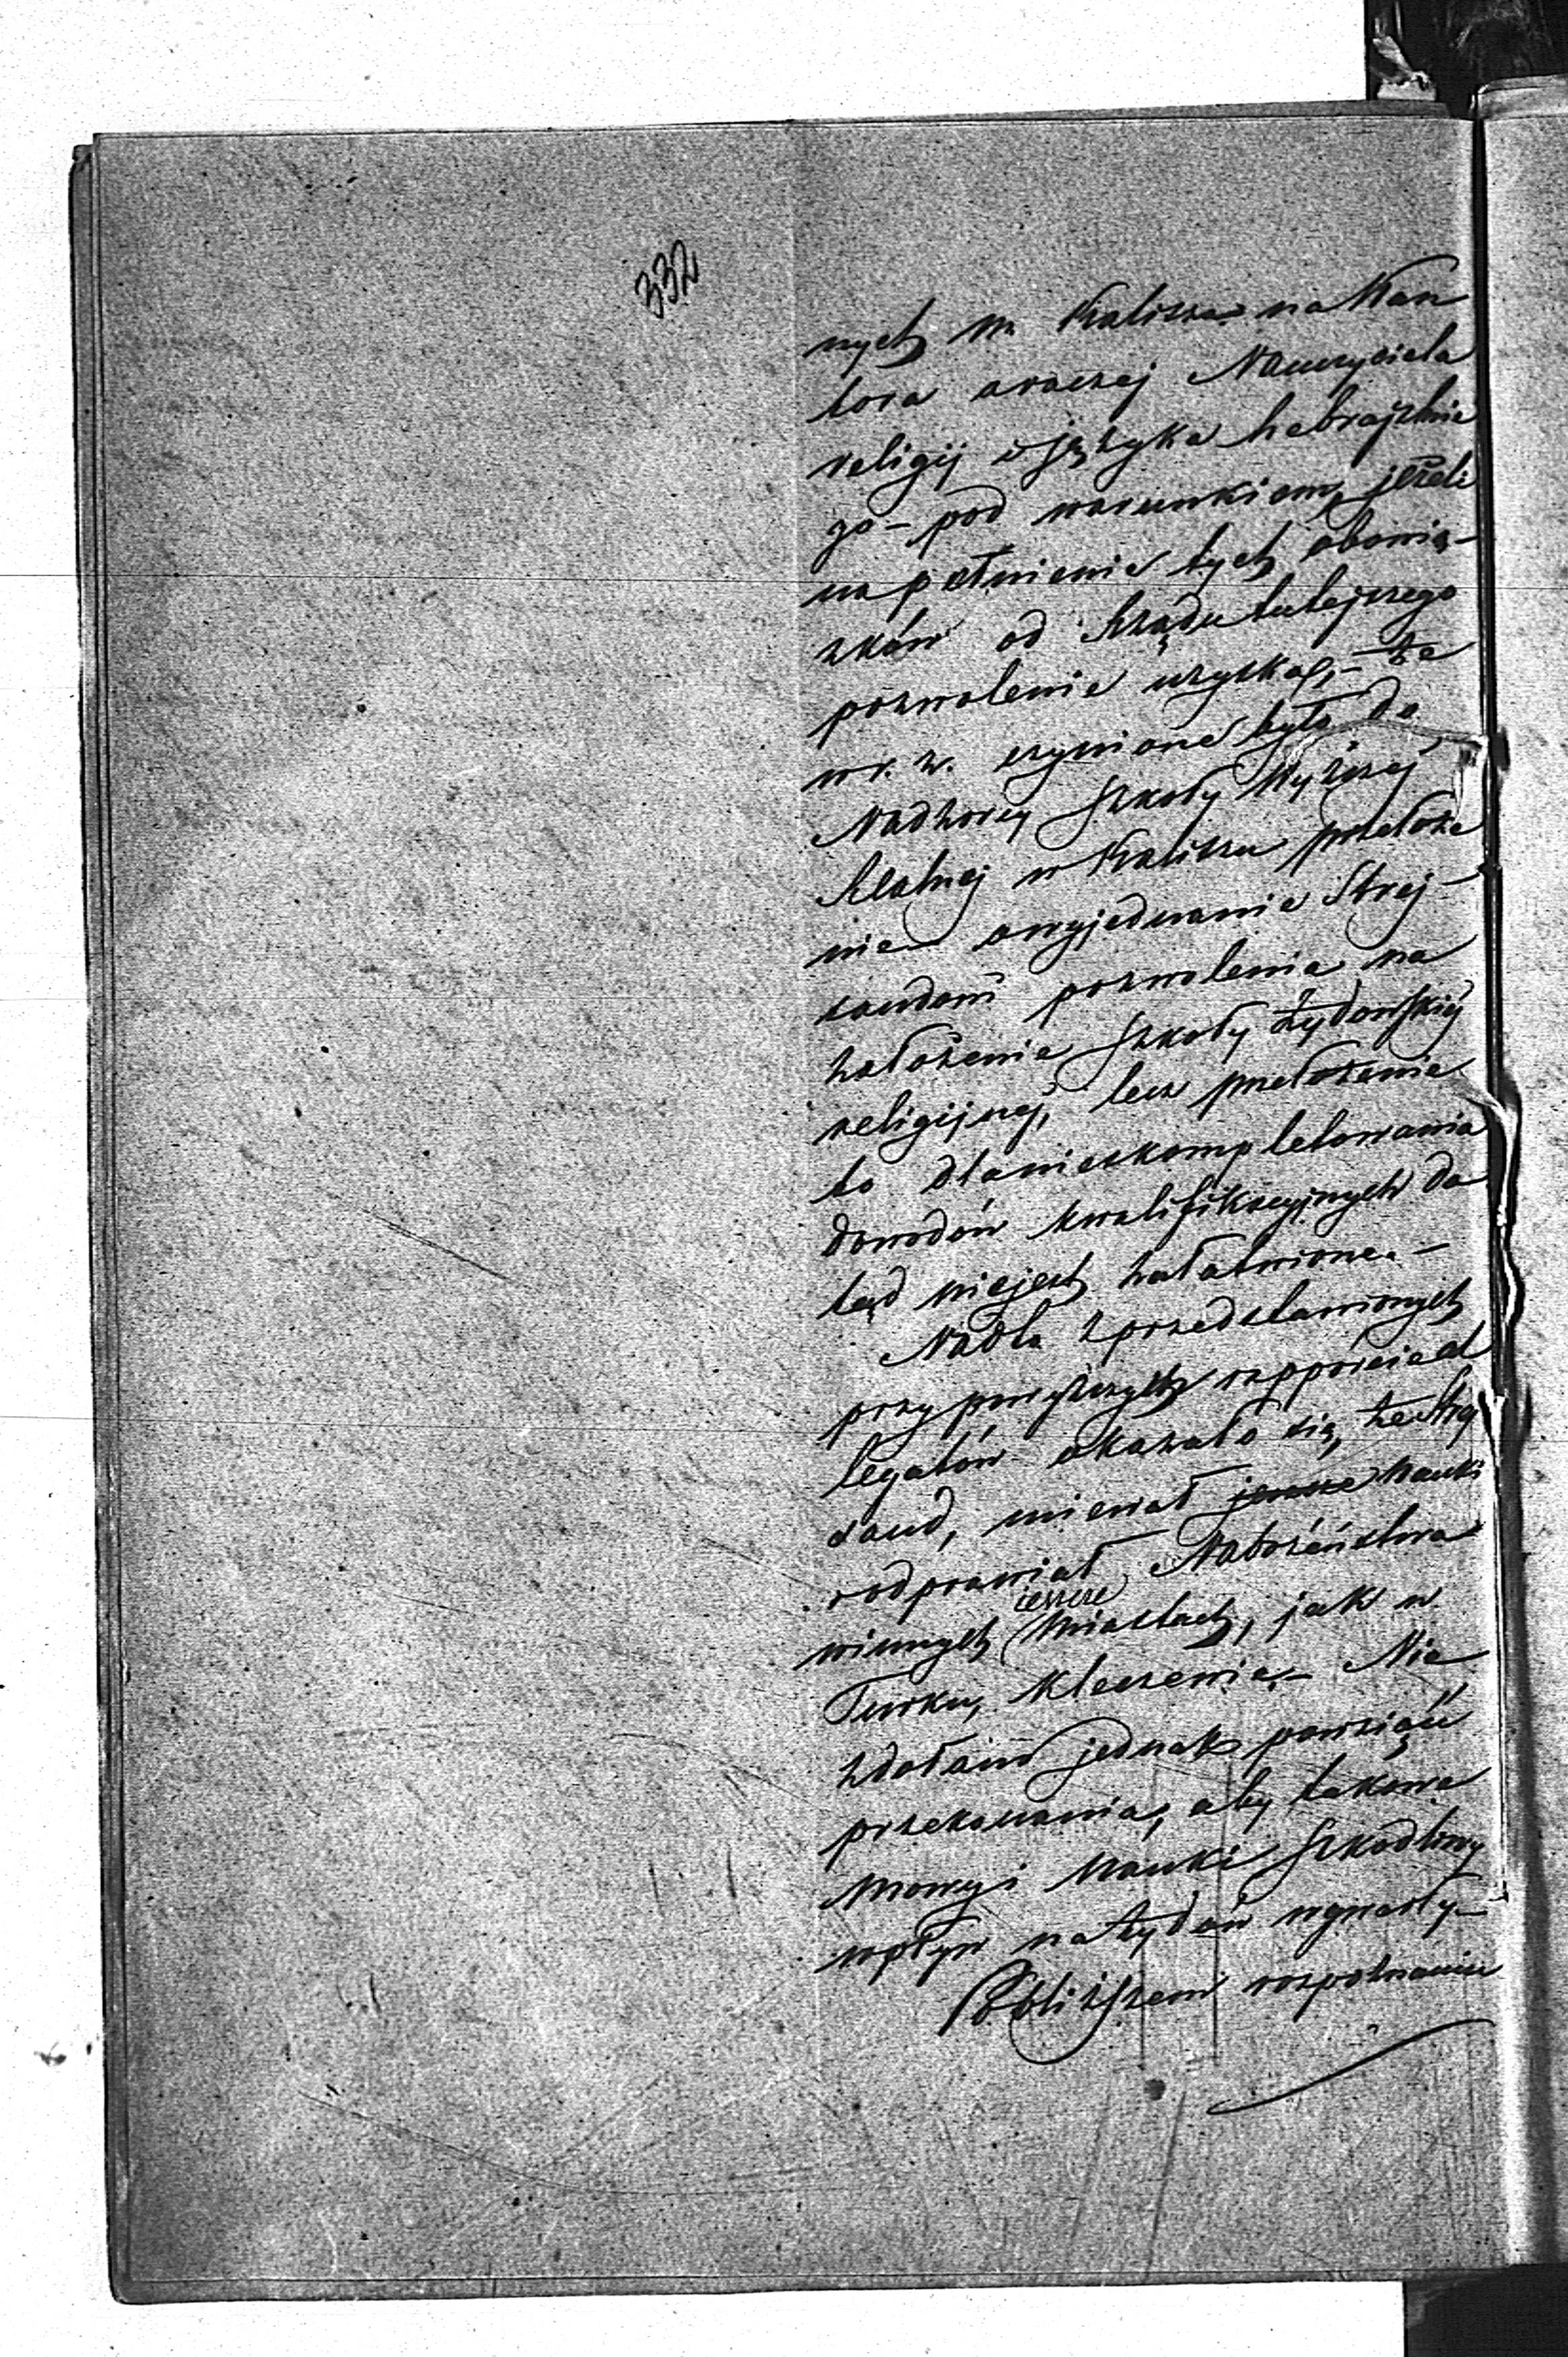 332
nych m. Kalisza na Kan
tora a raczej Nauczyciela
religij i języka hebrajskie
go – pod warunkiem, jeżeli
na pełnienie tych obowią-
zków od Rządu tutejszego
pozwolenie uzyska, – że
w r. z. czynione było do
Nadzorcy Szkoły Wyższej
Realnej w Kaliszu przełoże
nie o wyjednanie Strej-
sandowi pozwolenia na
założenie Szkoły żydowskiej
religijnej, lecz przełożenie
to dla nieskompletowania
dowodów kwalifikacyjnych do
tąd nie jest załatwione. –
Nadto z przedstawionych
przy powyższych rapporcie al
legatów okazało się, że Strej
sand, miewał jeszcze Nauki
i odprawiał Nabożeństwa
w innych jeszcze Miastach, jak w
Turku, Kleczewie. – Nie
zdołano jednak powziąść
przekonania, aby takowe
Mowy i Nauki szkodliwy
wpływ na Żydów wywarły –
Po bliższem rozpoznaniu